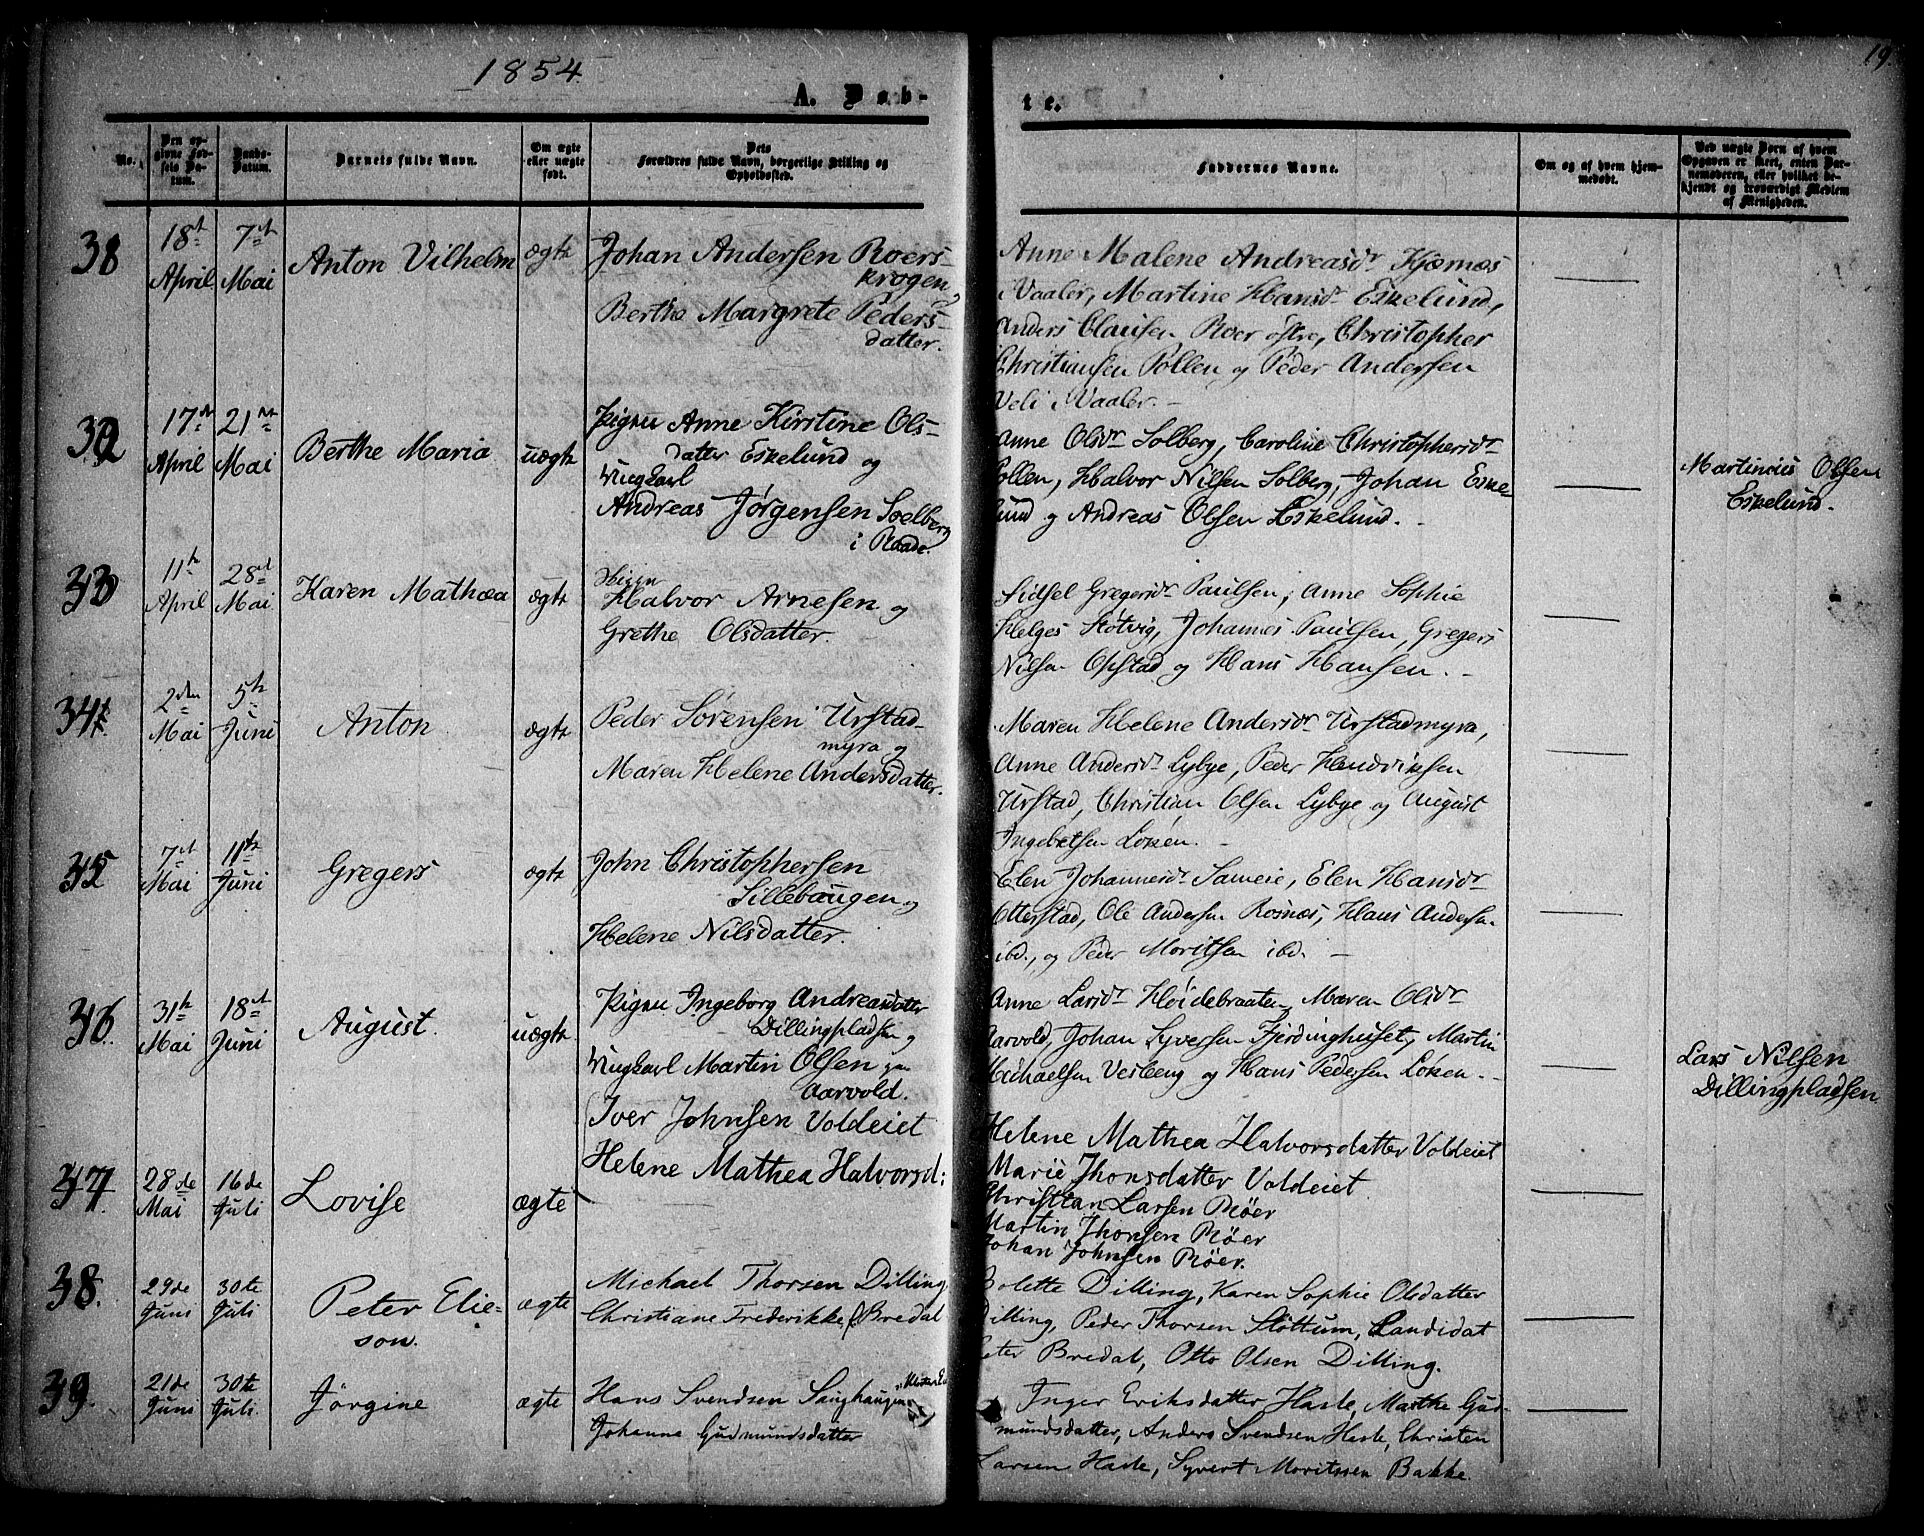 19.
1854.
A. Døb-
te.
No.
Den op-
givne Fød-
sels Da-
tum.
Daabs-
Datum.
Barnets fulde Navn.
Om ægte
eller uægte
født.
Dets
Forældres fulde Navn, borgerlige Stilling og
Opholdssted.
Faddernes Navne.
Om og af hvem hjem-
medøbt.
Ved uægte Børn af hvem
Opgaven er skeet, enten Bar-
nemoderen, eller hvilket be-
kjendt og troværdigt Medlem
af Menigheden.
18de
April
7de
Mai
Anton Vilhelm
ægte
Johan Andersen Roers-
krogen,
Berthe Margrete Peders-
datter.
Anne Malene Andreasdr Kjærnæs
i Vaaler, Martine Hansdr Eskelund,
Anders Clausen Roer østre, Christopher
Christiansen Pollen og Peder Andersen
Veli i Vaaler. -
17de
April
21de
Mai
Berthe Maria
uægte
Pigen Anne Kirstine Ols-
datter Eskelund og
Ungkarl
Andreas Jørgensen Soelberg
i Raade.
Anne Olsdr Solberg, Caroline Christophersdr
Pollen, Halvor Nilsen Solberg, Johan Eske-
lund og Andreas Olsen Eskelund. -
Martinius Olsen
Eskelund.
11te
April
28de
Mai
Karen Mathæa
ægte
Halvor Arnesen og
Grethe Olsdatter.
Sidsel Gregersdr Paulsen, Anne Sophie
Helges Støtvig, Johannes Paulsen, Gregers
Nilsen Opstad og Hans Hansen. -
34
2den
Mai
5te
Juni
Anton
ægte
Peder Sørensen Urstad-
myra og
Maren Helene Andersdatter.
Maren Helene Andersdr Urstadmyra,
Anne Andersdr Lybye, Peder Hendriksen
Urstad, Christian Olsen Lybye og August
Ingebretsen Løken. -
35
7de
Mai
11te
Juni
Gregers
ægte
John Christophersen
Sillebaugen og
Helene Nilsdatter.
Elen Johannesdr Sameie, Elen Hansdr
Otterstad, Ole Andersen Rosnæs, Klaus Andersen
ibd., og Peder Moritsen ibd. -
36
31te
Mai
18de
Juni
August.
uægte
Pigen Ingeborg Andreasdatter
Dillingpladsen og
Ungkarl Martin Olsen
Aarvold.
Anne Larsdr Høidebraaten, Maren Olsdr
Aarvold, Johan Syversen Fjerdinghuset, Martin
Michaelsen Vesleeng og Hans Pedersen Løken. -
Lars Nilsen
Dillingpladsen
37
28de
Mai
16de
Juli
Lovise
ægte
Iver Johnsen Voldeiet
Helene Mathea Halvorsd:
Helene Mathea Halvorsdatter Voldeiet
Marie Jhonsdatter Voldeiet
Christian Larsen Röer
Martin Jhonsen Röer
Johan Johnsen Röer.
38.
29de
Juni
30te
Juli
Peter Elie-
son.
ægte
Michael Thorsen Dilling
Christiane Frederikke f. Bredal
Bolette Dilling, Karen Sophie Olsdatter
Dilling, Peder Thorsen Slottum, Candidat
Peter Bredal, Otto Olsen Dilling.
39.
21de
Juni
30te
Juli.
Jörgine
ægte
Hans Svendsen Saughaugen
Johanne Gudmundsdatter
Inger Eriksdatter Hasle, Marthe Gud-
mundsdatter, Anders Svendsen Hasle, Christen
Larsen Hasle, Syvert Moritssen Bakke.